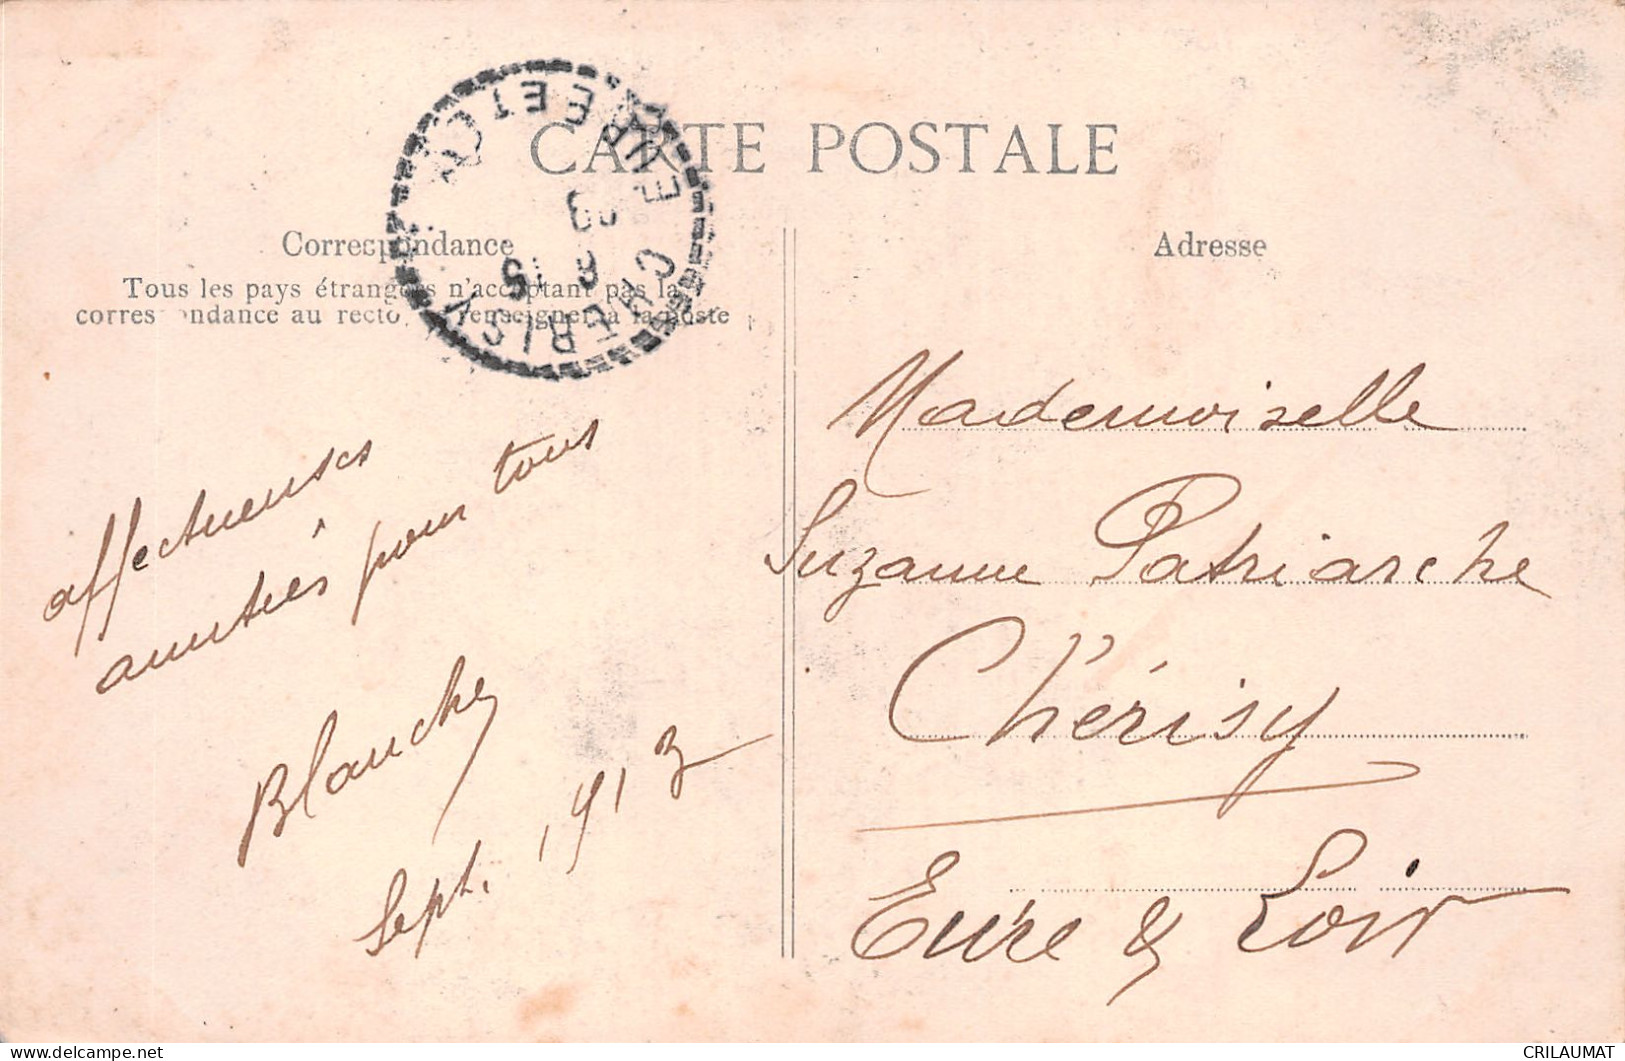 CARTE POSTALE
Correspondance
Tous les pays étrangers n'acceptant pas la
correspondance au recto, se renseigner à la poste
Adresse
CHERISY
EURE ET
affectueuses
amitiés pour tous
Blanche
Sept. 1913
Mademoiselle
Suzanne Patriarche
Chérisy
Eure & Loir
CRILAUMAT